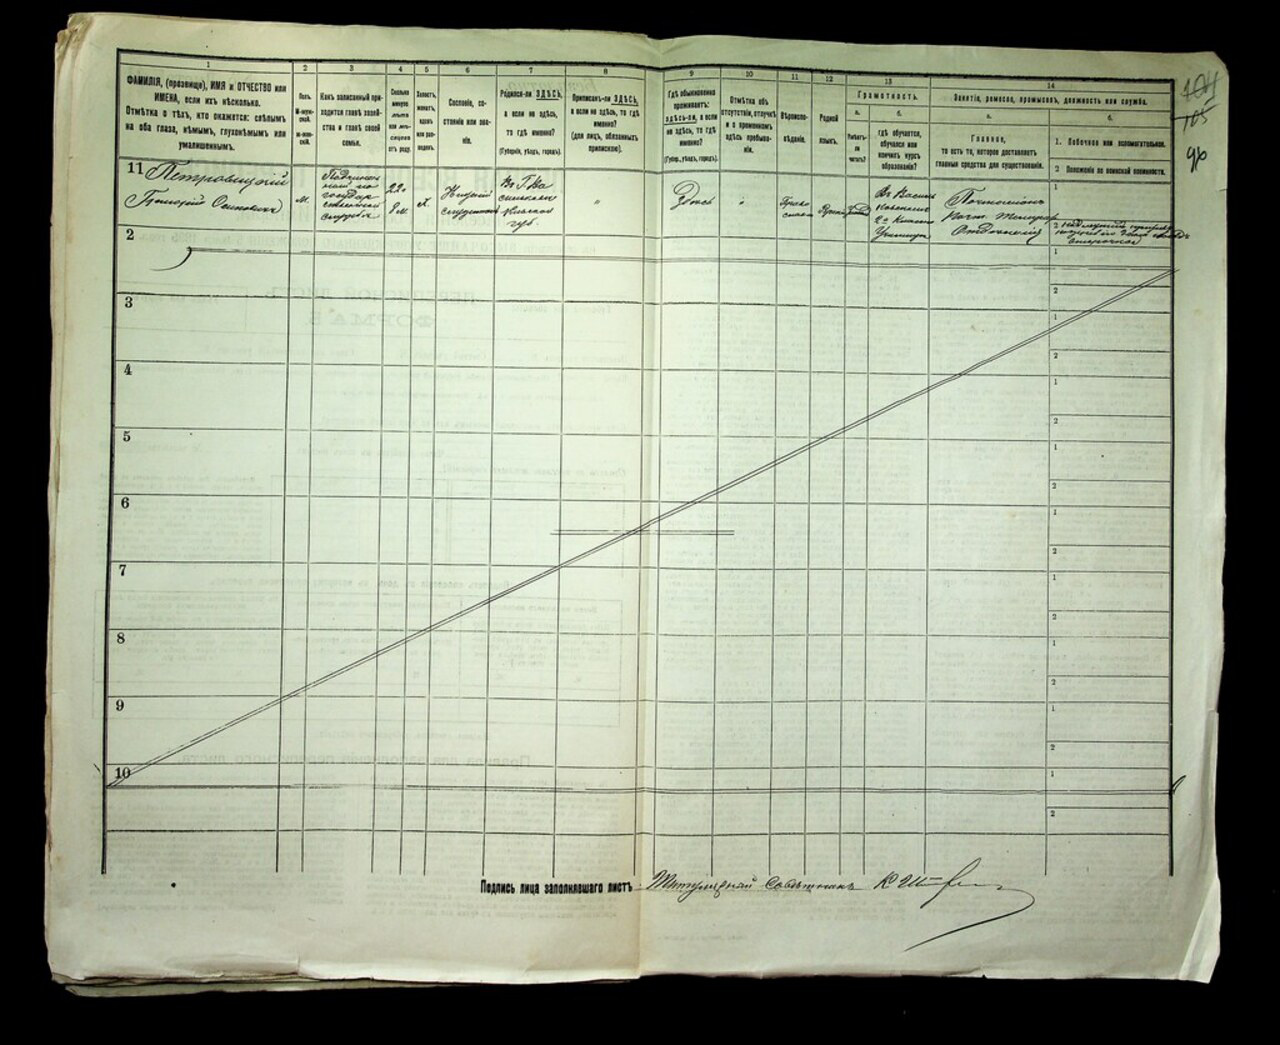 104
105
96
1
2
3
4
5
6
7
8
9
10
11
12
13
14
ФАМИЛІЯ, (прозвище), ИМЯ и ОТЧЕСТВО или
ИМЕНА, если ихъ нѣсколько.
Отмѣтка о тѣхъ, кто окажется: слѣпымъ
на оба глаза, нѣмымъ, глухонѣмымъ или
умалишеннымъ.
Полъ.
М-мужской.
Ж-женскій.
Какъ записанный при-
ходится главѣ хозяй-
ства и главѣ своей
семьи.
Сколько
минуло
лѣтъ
или мѣ-
сяцевъ
отъ роду.
Холостъ,
женатъ,
вдовъ
или раз-
веденъ.
Сословіе, со-
стояніе или зва-
ніе.
Родился-ли ЗДѢСЬ,
а если не здѣсь,
то гдѣ именно?
(Губернія, уѣздъ, городъ).
Приписанъ-ли ЗДѢСЬ,
а если не здѣсь, то гдѣ
именно?
(для лицъ, обязанныхъ
припискою).
Гдѣ обыкновенно
проживаетъ:
здѣсь-ли, а если
не здѣсь, то гдѣ
именно?
(Губерн., уѣздъ, городъ).
Отмѣтка объ
отсутствіи, отлучкѣ
и о временномъ
здѣсь пребыва-
ніи.
Вѣроиспо-
вѣданіе.
Родной
языкъ.
Грамотность.
а.
Умѣетъ-
ли
читать?
б.
гдѣ обучается,
обучался или
кончилъ курсъ
образованія?
Занятія, ремесло, промыселъ, должность или служба.
а.
Главная,
то есть то, которое доставляетъ
главныя средства для существованія.
б.
1. Побочное или вспомогательное.
2. Положеніе по воинской повинности.
11 Петровицкій
М.
22
8 м.
Х.
Въ г. Ва
сильковѣ
Кіевской
губ.
"
Здѣсь
"
Въ Василь
ковскомъ
2х классн
Училищѣ
Почт. Телегр
Отдѣленія
1
2
2
1
2
3
1
2
4
1
2
5
1
2
6
1
2
7
1
2
8
1
2
9
1
2
10
1
2
Подпись лица заполнившаго листъ Титулярный Совѣтникъ